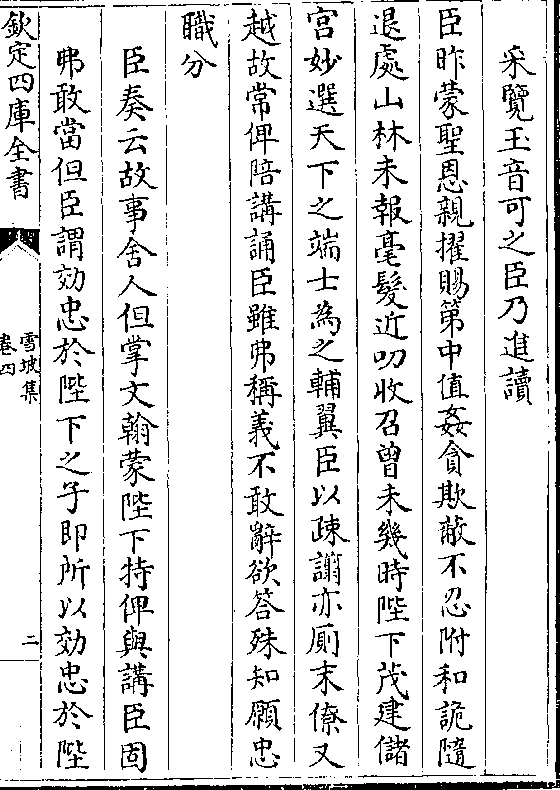 采覽玉音可之臣乃進讀
臣昨蒙聖恩親擢賜第中值姦貪欺蔽不忍附和詭隨
退處山林未報毫髮近叨收召曾未幾時陛下茂建儲
宮妙選天下之端士為之輔翼臣以疎謭亦厠末僚又
越故常俾陪講誦臣雖弗稱義不敢辭欲答殊知願忠
職分
臣奏云故事舍人但掌文翰蒙陛下特俾與講臣固
弗敢當但臣謂効忠於陛下之子即所以効忠於陛
欽定四庫全書
雪坡集
卷四
二